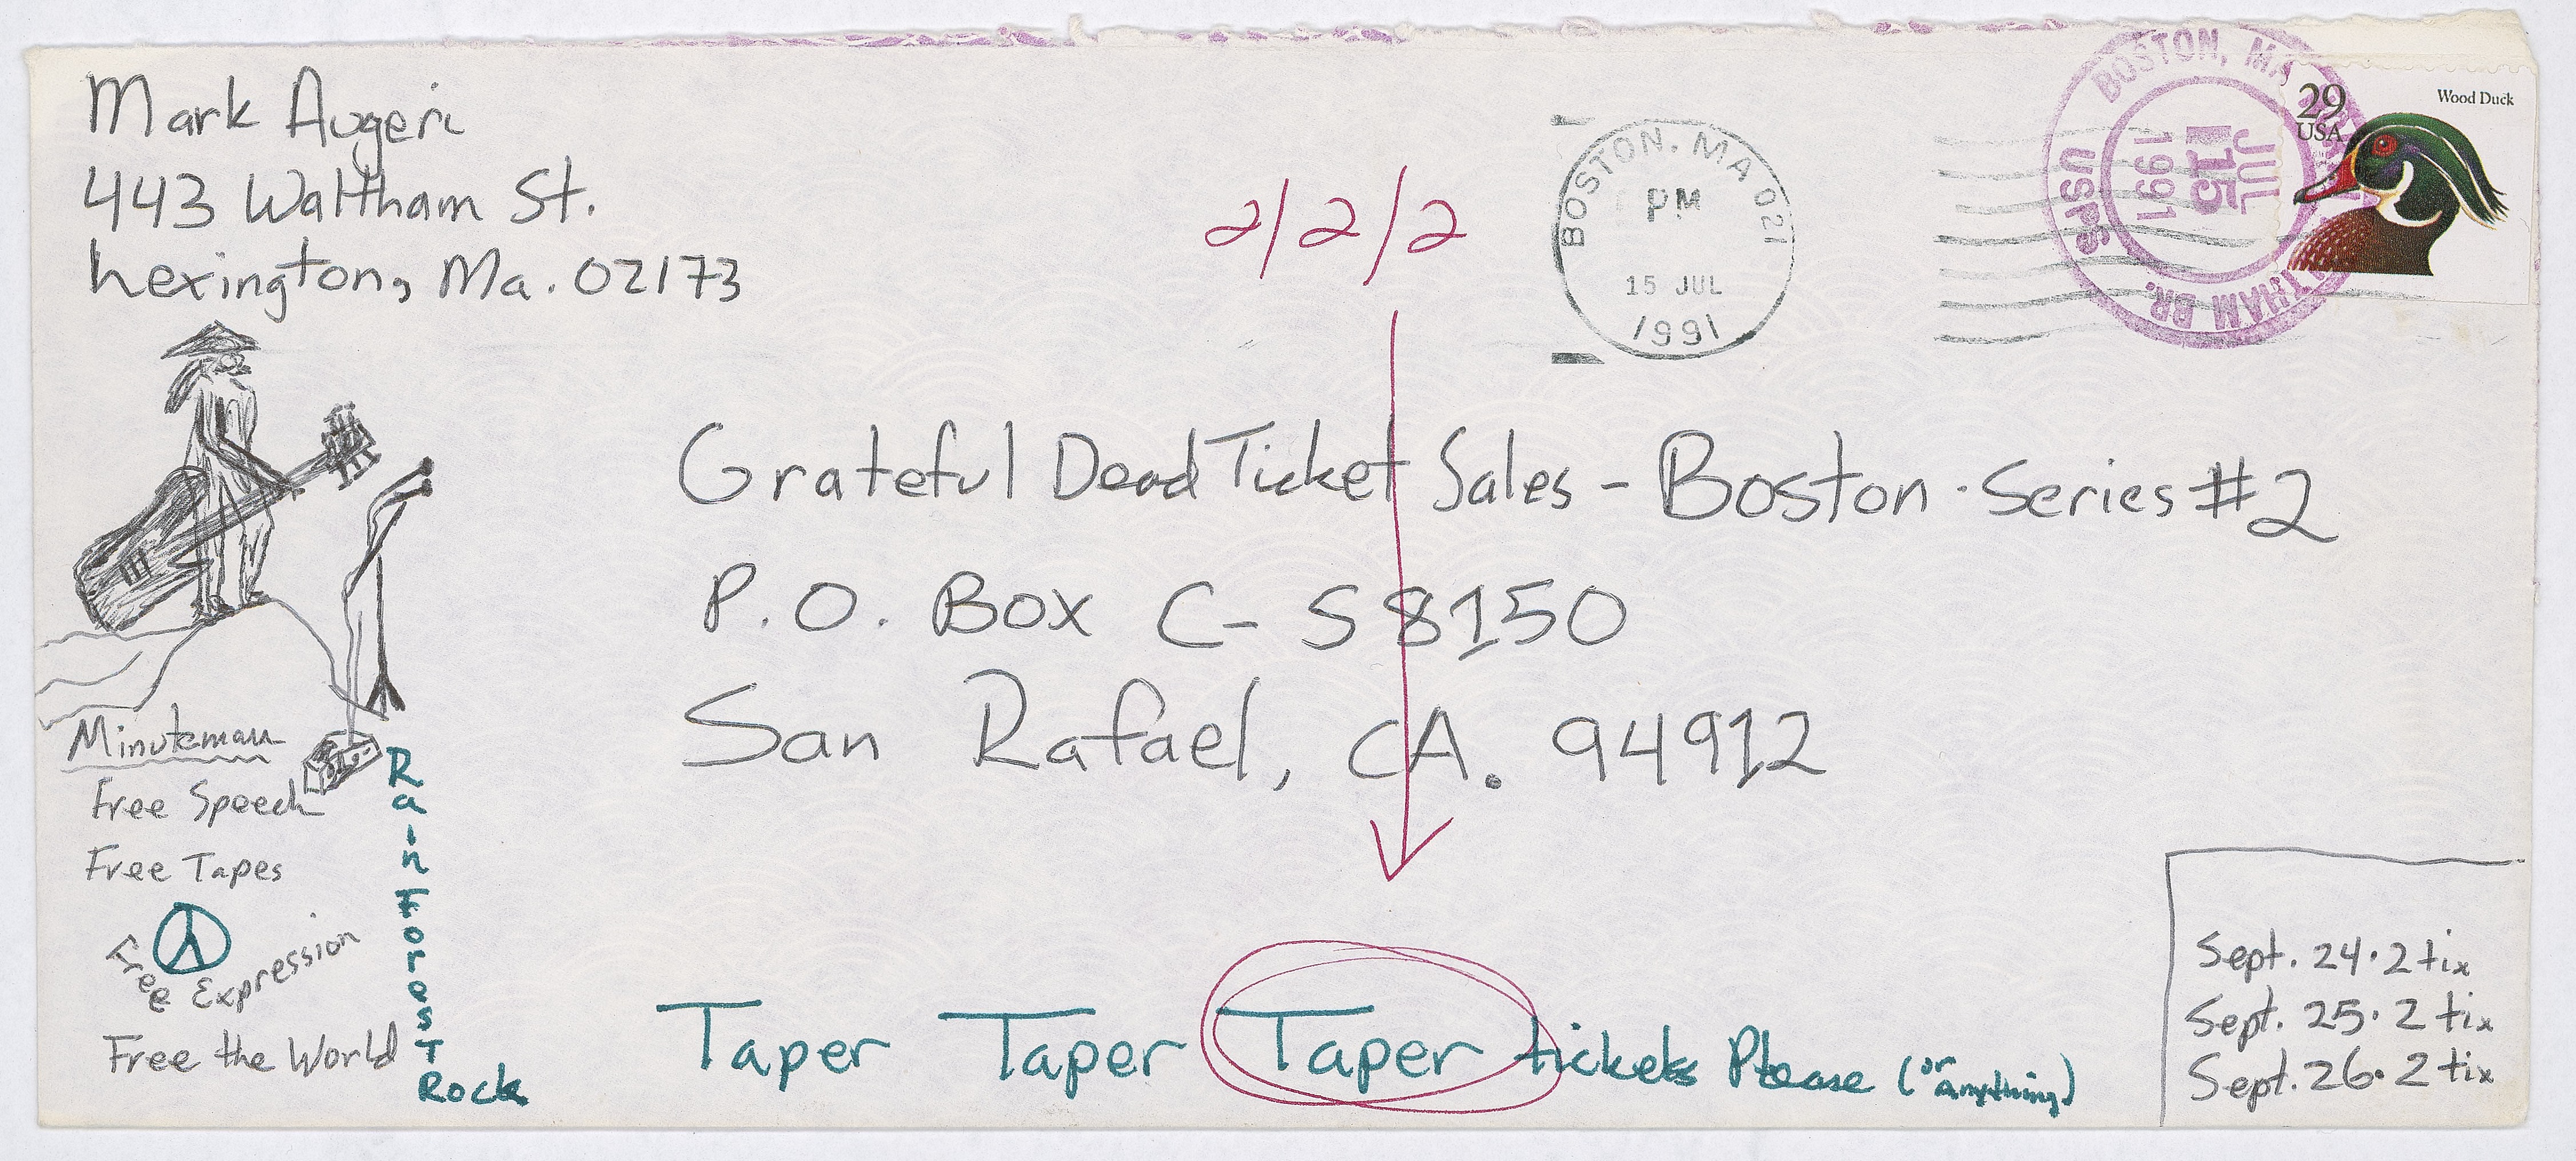 Mark Augeri
443 Waltham St.
Lexington, Ma. 02173
2/2/2
BOSTON, MA 021
PM
15 JUL
1991
BOSTON, MA
JUL
15
1991
USPS
THAM BR.
29
USA
Wood Duck
Grateful Dead Ticket Sales - Boston · Series #2
P. O. Box C- S 8150
San Rafael, CA. 94912
Minuteman
Free Speech
Free Tapes
Free Expression
Free the World
RainForesT
Rock
Taper Taper Taper tickets Please (or anything)
Sept. 24 · 2 tix
Sept. 25 · 2 tix
Sept. 26 · 2 tix